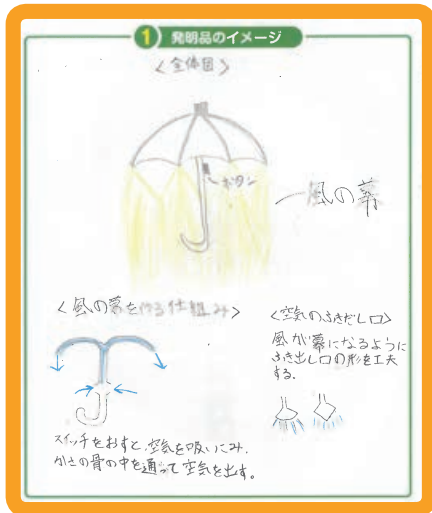 1 発明品のイメージ
<全体図>
ボタン
風の幕
<風の幕を作る仕組み>
スイッチをおすと、空気を吸いこみ、
かさの骨の中を通って空気を出す。
<空気のふきだし口>
風が幕になるように
ふき出し口の形を工夫
する.